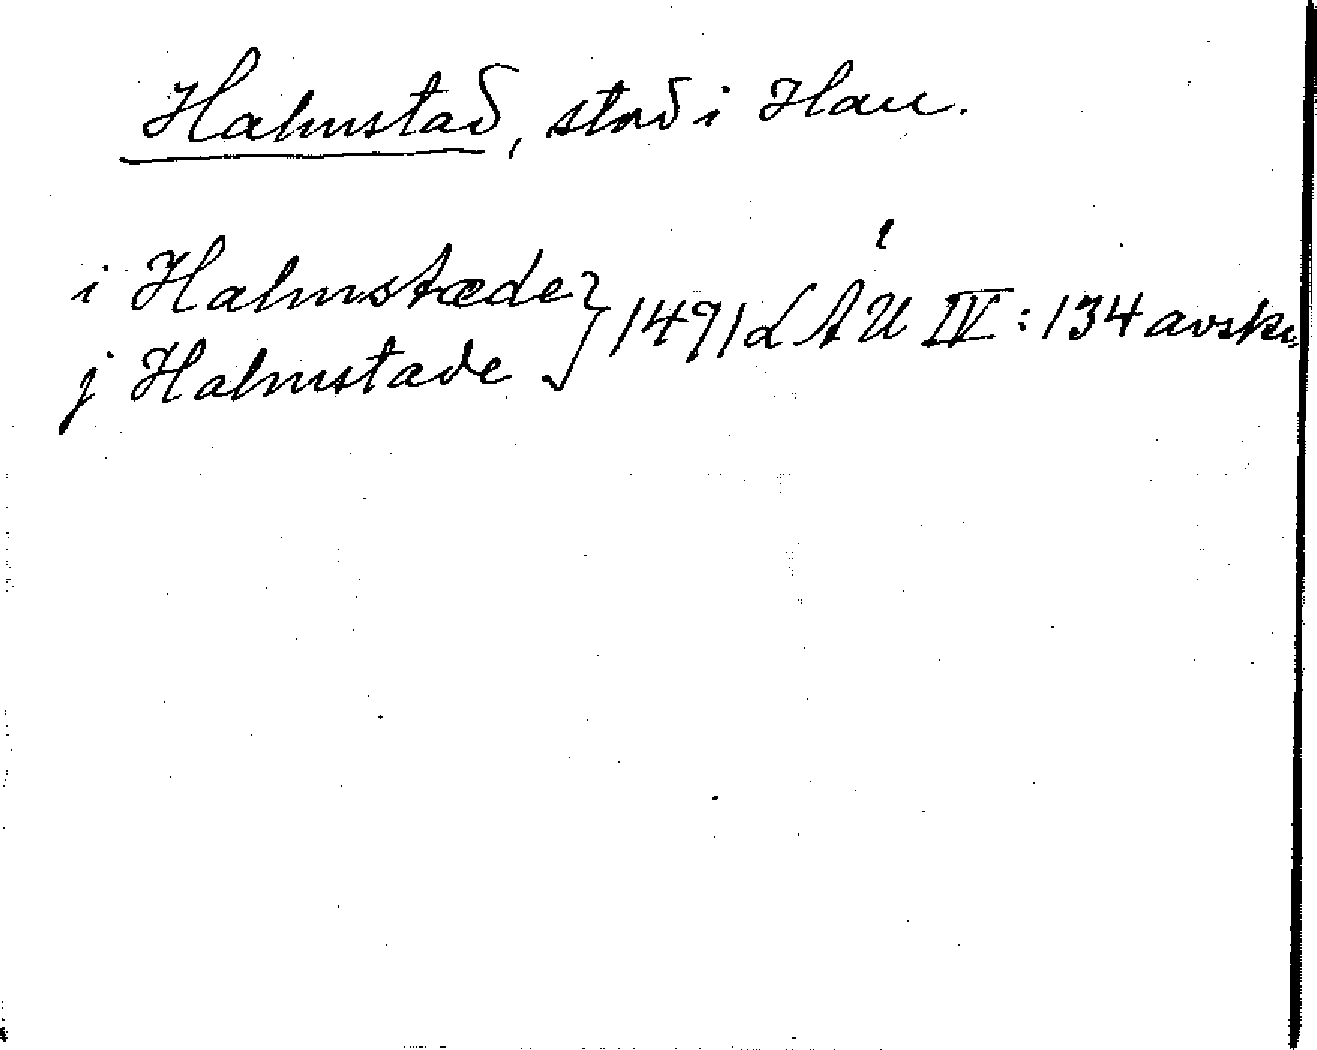 Halmstad, stad i Hall.
i Halmstæde } 1491 LÅU IV:134 avskr.
j Halmstade